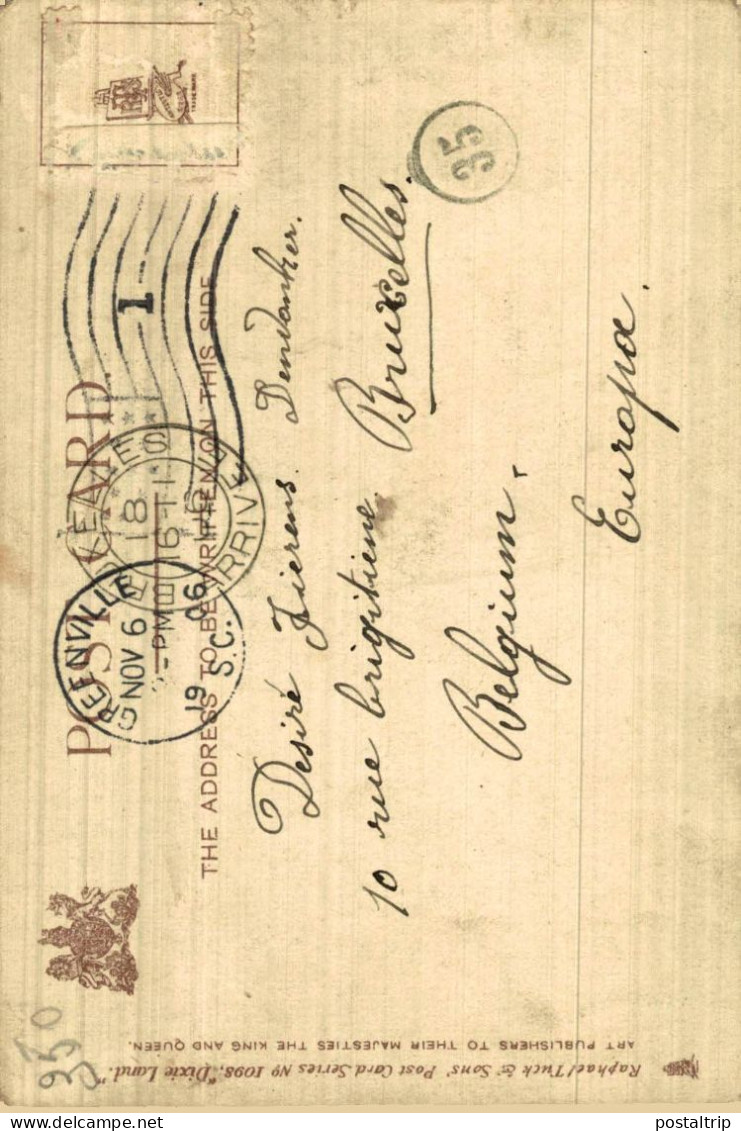 POST CARD.
THE ADDRESS TO BE WRITTEN ON THIS SIDE
GREENVILLE
NOV 6
PM
1906
S.C.
1
BRUXELLES
18
16-11
6
ARRIVEE
TRADE MARK
35
Desiré Fierens Dendonker.
10 rue brigitiene Bruxelles.
Belgium.
Europa.
350
Raphael Tuck & Sons' Post Card Series Nº 1098, "Dixie Land."
ART PUBLISHERS TO THEIR MAJESTIES THE KING AND QUEEN.
postaltrip
POSTALTRIP.COM